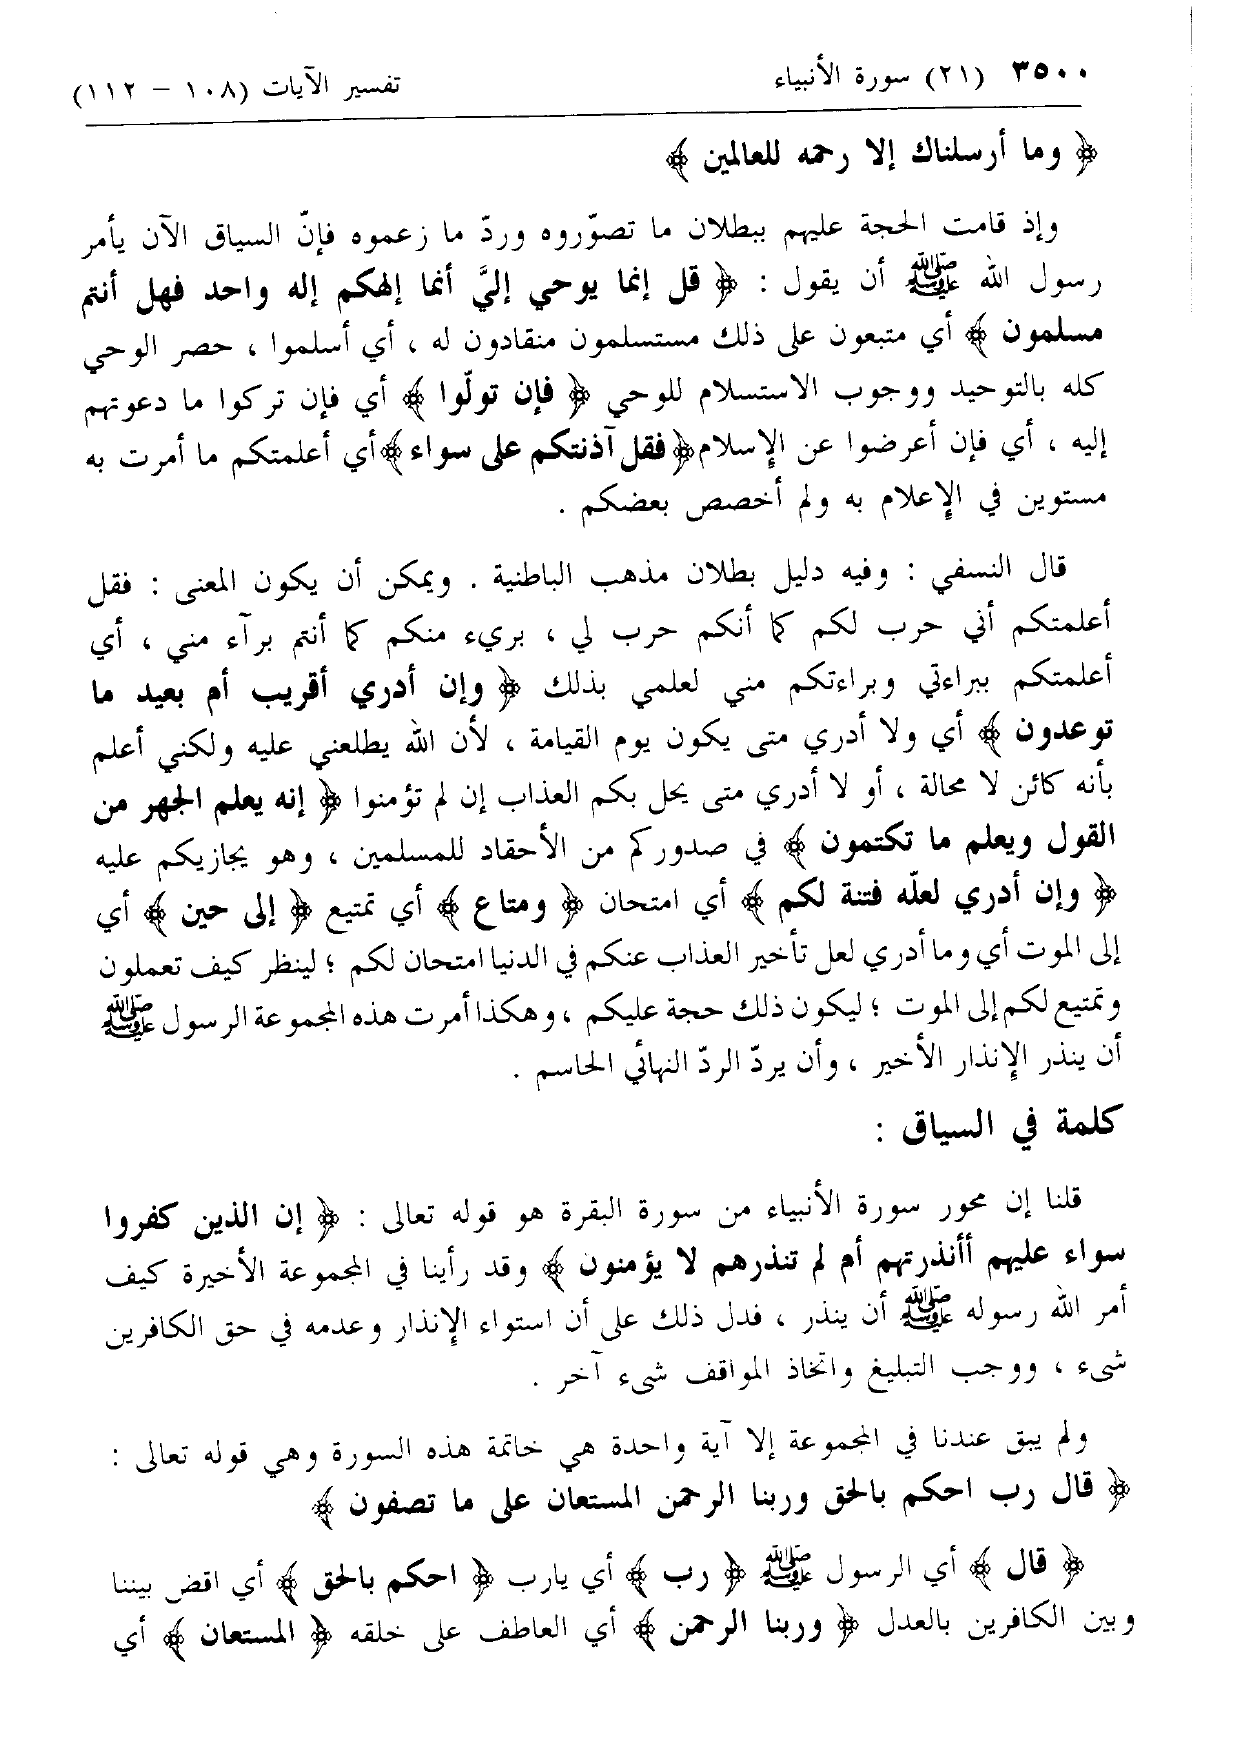 ٣٥٠٠ (٢١) سورة الأنبياء تفسير الآيات (١٠٨ – ١١٢)
﴿ وما أرسلناك إلا رحمه للعالمين ﴾
وإذ قامت الحجة عليهم ببطلان ما تصوّروه وردّ ما زعموه فإنّ السياق الآن يأمر
رسول الله ﷺ أن يقول : ﴿ قل إنما يوحي إليَّ أنما إلهكم إله واحد فهل أنتم
مسلمون ﴾ أي متبعون على ذلك مستسلمون منقادون له ، أي أسلموا ، حصر الوحي
كله بالتوحيد ووجوب الاستسلام للوحي ﴿ فإن تولّوا ﴾ أي فإن تركوا ما دعوتهم
إليه ، أي فإن أعرضوا عن الإسلام ﴿ فقل آذنتكم على سواء ﴾ أي أعلمتكم ما أمرت به
مستوين في الإعلام به ولم أخصص بعضكم .
قال النسفي : وفيه دليل بطلان مذهب الباطنية . ويمكن أن يكون المعنى : فقل
أعلمتكم أني حرب لكم كما أنكم حرب لي ، بريء منكم كما أنتم برآء مني ، أي
أعلمتكم ببراءتي وبراءتكم مني لعلمي بذلك ﴿ وإن أدري أقريب أم بعيد ما
توعدون ﴾ أي ولا أدري متى يكون يوم القيامة ، لأن الله يطلعني عليه ولكني أعلم
بأنه كائن لا محالة ، أو لا أدري متى يحل بكم العذاب إن لم تؤمنوا ﴿ إنه يعلم الجهر من
القول ويعلم ما تكتمون ﴾ في صدوركم من الأحقاد للمسلمين ، وهو يجازيكم عليه
﴿ وإن أدري لعلّه فتنة لكم ﴾ أي امتحان ﴿ ومتاع ﴾ أي تمتيع ﴿ إلى حين ﴾ أي
إلى الموت أي وما أدري لعل تأخير العذاب عنكم في الدنيا امتحان لكم ؛ لينظر كيف تعملون
وتمتيع لكم إلى الموت ؛ ليكون ذلك حجة عليكم ، وهكذا أمرت هذه المجموعة الرسول ﷺ
أن ينذر الإنذار الأخير ، وأن يردّ الردّ النهائي الحاسم .
كلمة في السياق :
قلنا إن محور سورة الأنبياء من سورة البقرة هو قوله تعالى : ﴿ إن الذين كفروا
سواء عليهم أأنذرتهم أم لم تنذرهم لا يؤمنون ﴾ وقد رأينا في المجموعة الأخيرة كيف
أمر الله رسوله ﷺ أن ينذر ، فدل ذلك على أن استواء الإنذار وعدمه في حق الكافرين
شىء ، ووجب التبليغ واتخاذ المواقف شىء آخر .
ولم يبق عندنا في المجموعة إلا آية واحدة هي خاتمة هذه السورة وهي قوله تعالى :
﴿ قال رب احكم بالحق وربنا الرحمن المستعان على ما تصفون ﴾
﴿ قال ﴾ أي الرسول ﷺ ﴿ رب ﴾ أي يارب ﴿ احكم بالحق ﴾ أي اقض بيننا
وبين الكافرين بالعدل ﴿ وربنا الرحمن ﴾ أي العاطف على خلقه ﴿ المستعان ﴾ أي